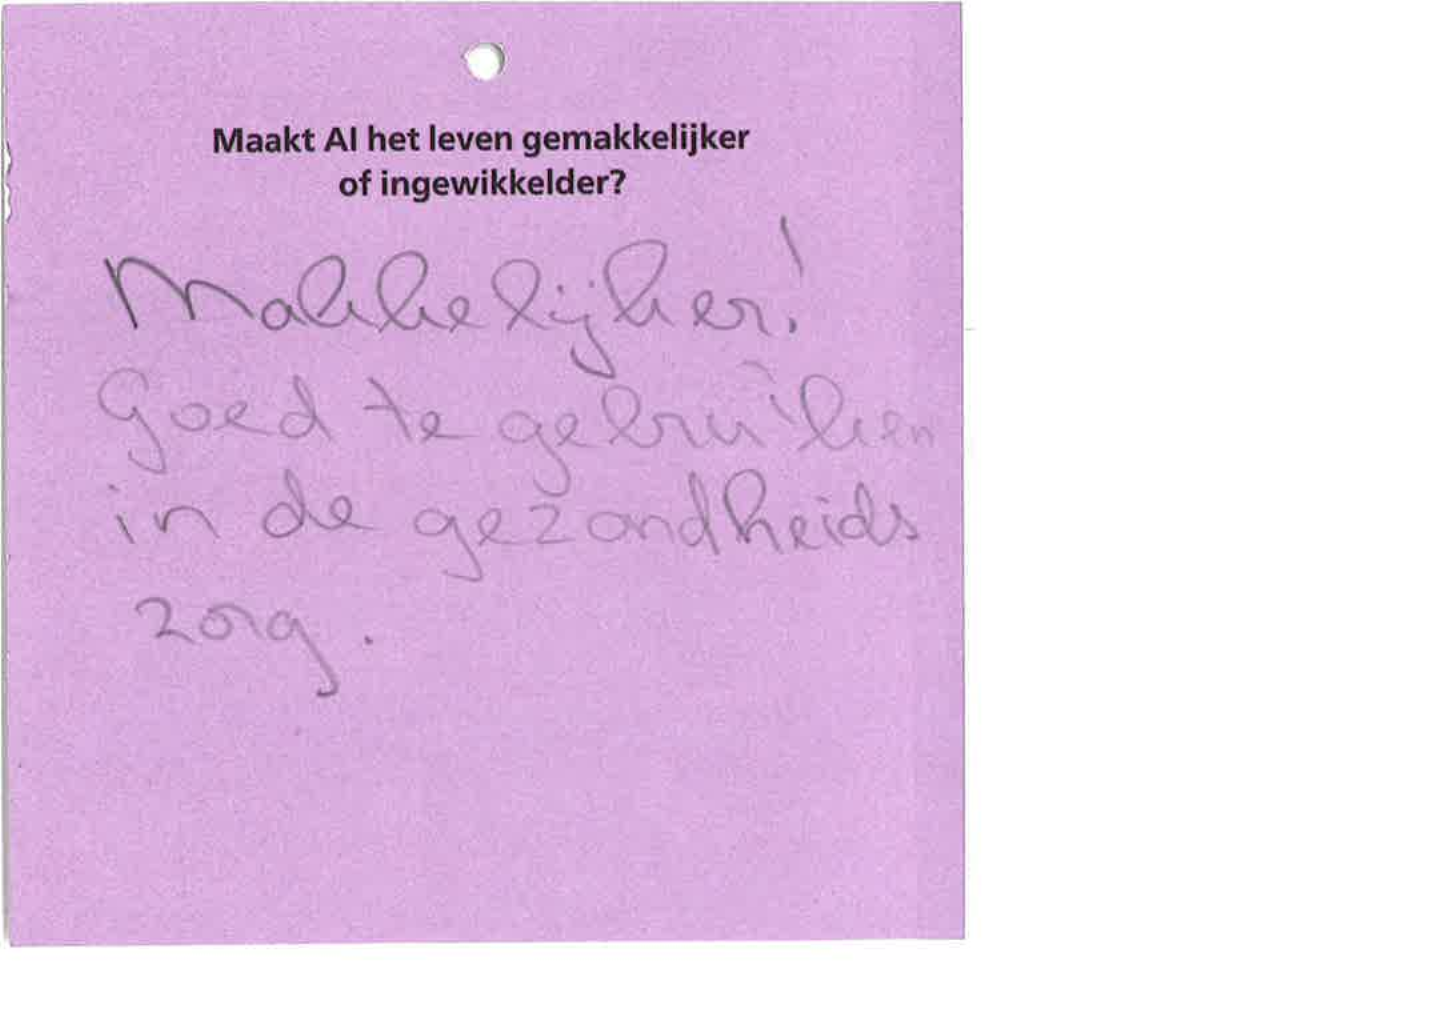 Maakt AI het leven gemakkelijker
of ingewikkelder?
Makkelijker!
Goed te gebruiken
in de gezondheids
zorg.